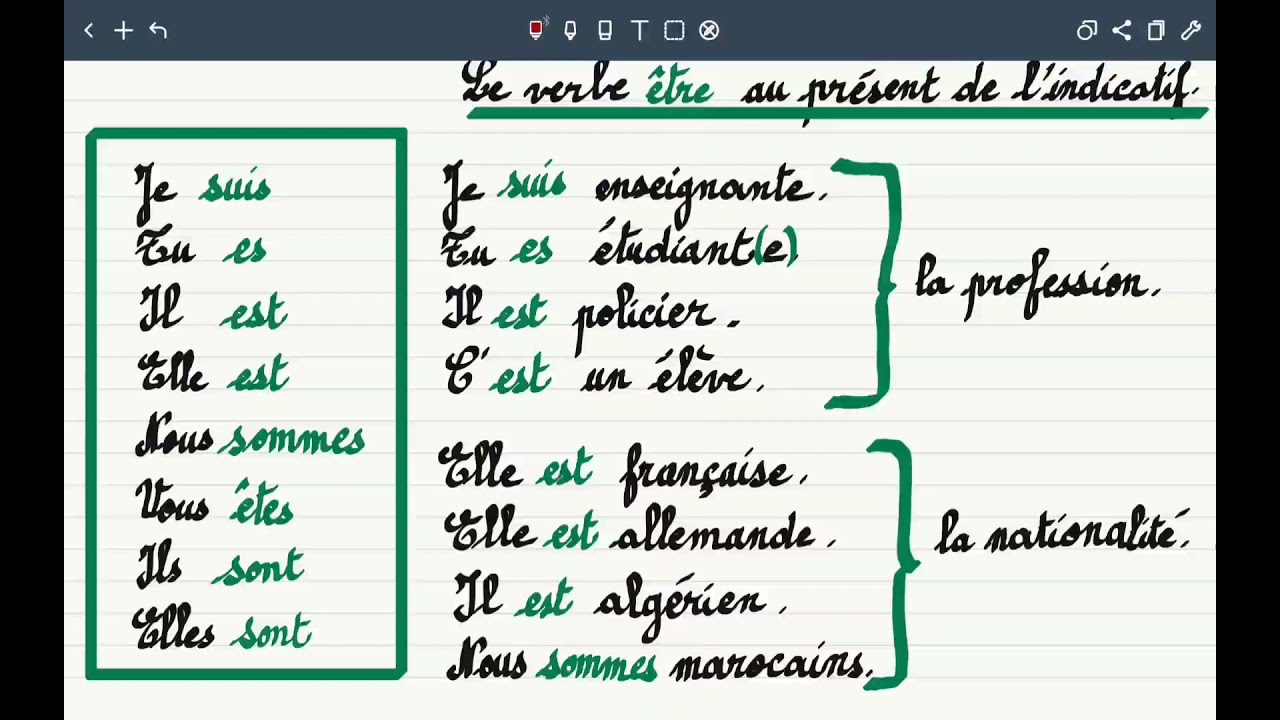 Le verbe être au présent de l'indicatif.
Je suis
Tu es
Il est
Elle est
Nous sommes
Vous êtes
Ils sont
Elles sont
Je suis enseignante.
Tu es étudiant(e)
Il est policier.
C'est un élève.
la profession.
Elle est française.
Elle est allemande.
Il est algérien.
Nous sommes marocains.
la nationalité.